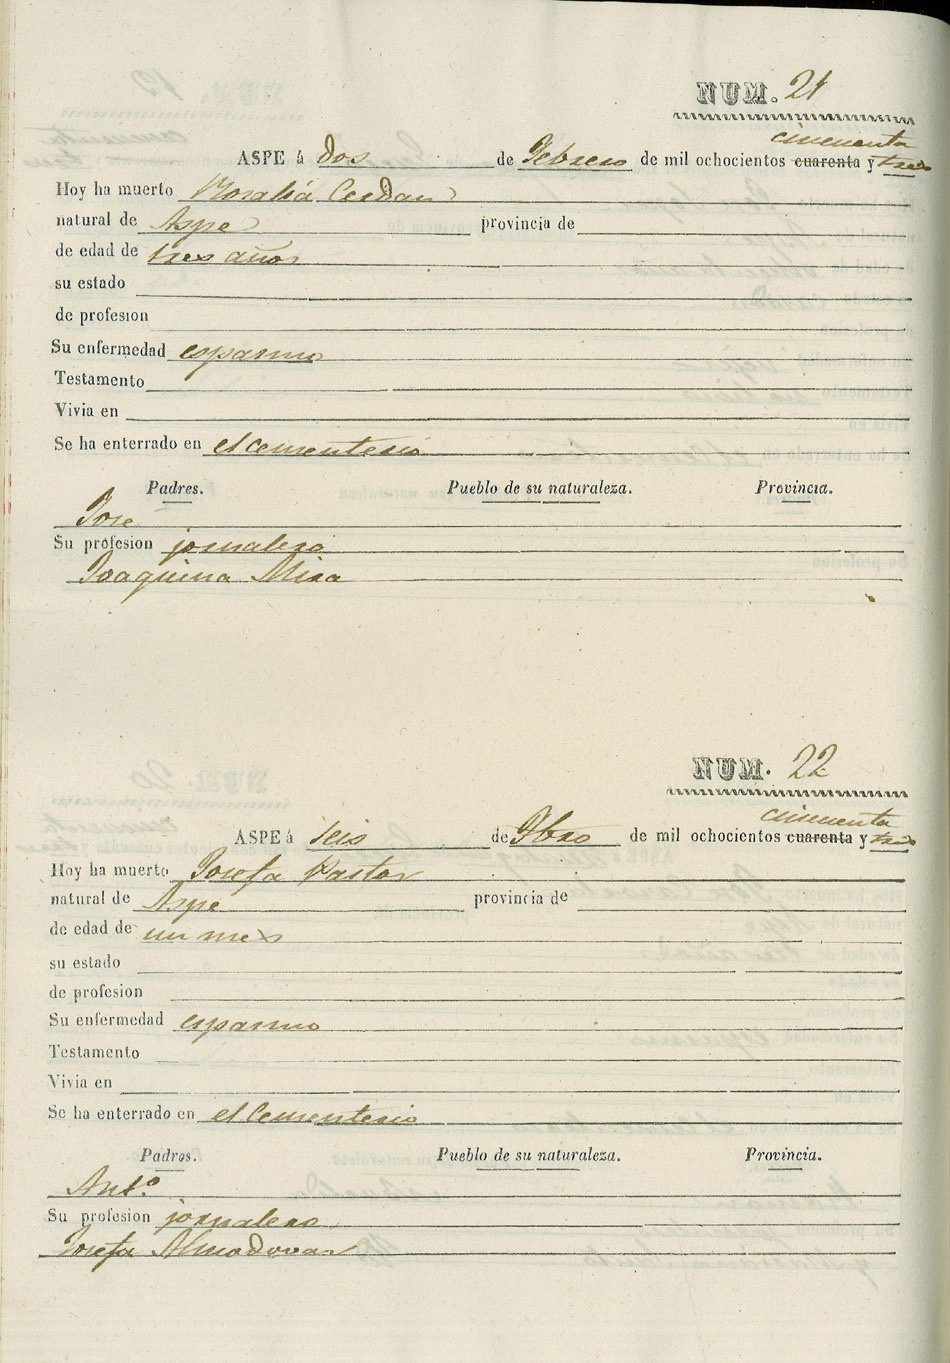 NUM. 21
cincuenta
ASPE á dos de Febrero de mil ochocientos cuarenta y tres
Hoy ha muerto Rosalia Cerdan
natural de Aspe provincia de
de edad de tres años
su estado
de profesion
Su enfermedad espasmo
Testamento
Vivia en
Se ha enterrado en el cementerio
Padres. Pueblo de su naturaleza. Provincia.
Jose
Su profesion jornalero
Joaquina Mira
NUM. 22
cincuenta
ASPE á seis de Fbro de mil ochocientos cuarenta y tres
Hoy ha muerto Josefa Pastor
natural de Aspe provincia de
de edad de un mes
su estado
de profesion
Su enfermedad espasmo
Testamento
Vivia en
Se ha enterrado en el Cementerio
Padres. Pueblo de su naturaleza. Provincia.
Anto.
Su profesion jornalero
Josefa Almodovar